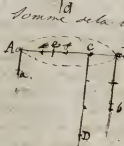 d
Somme de la
A e c
a
b
D